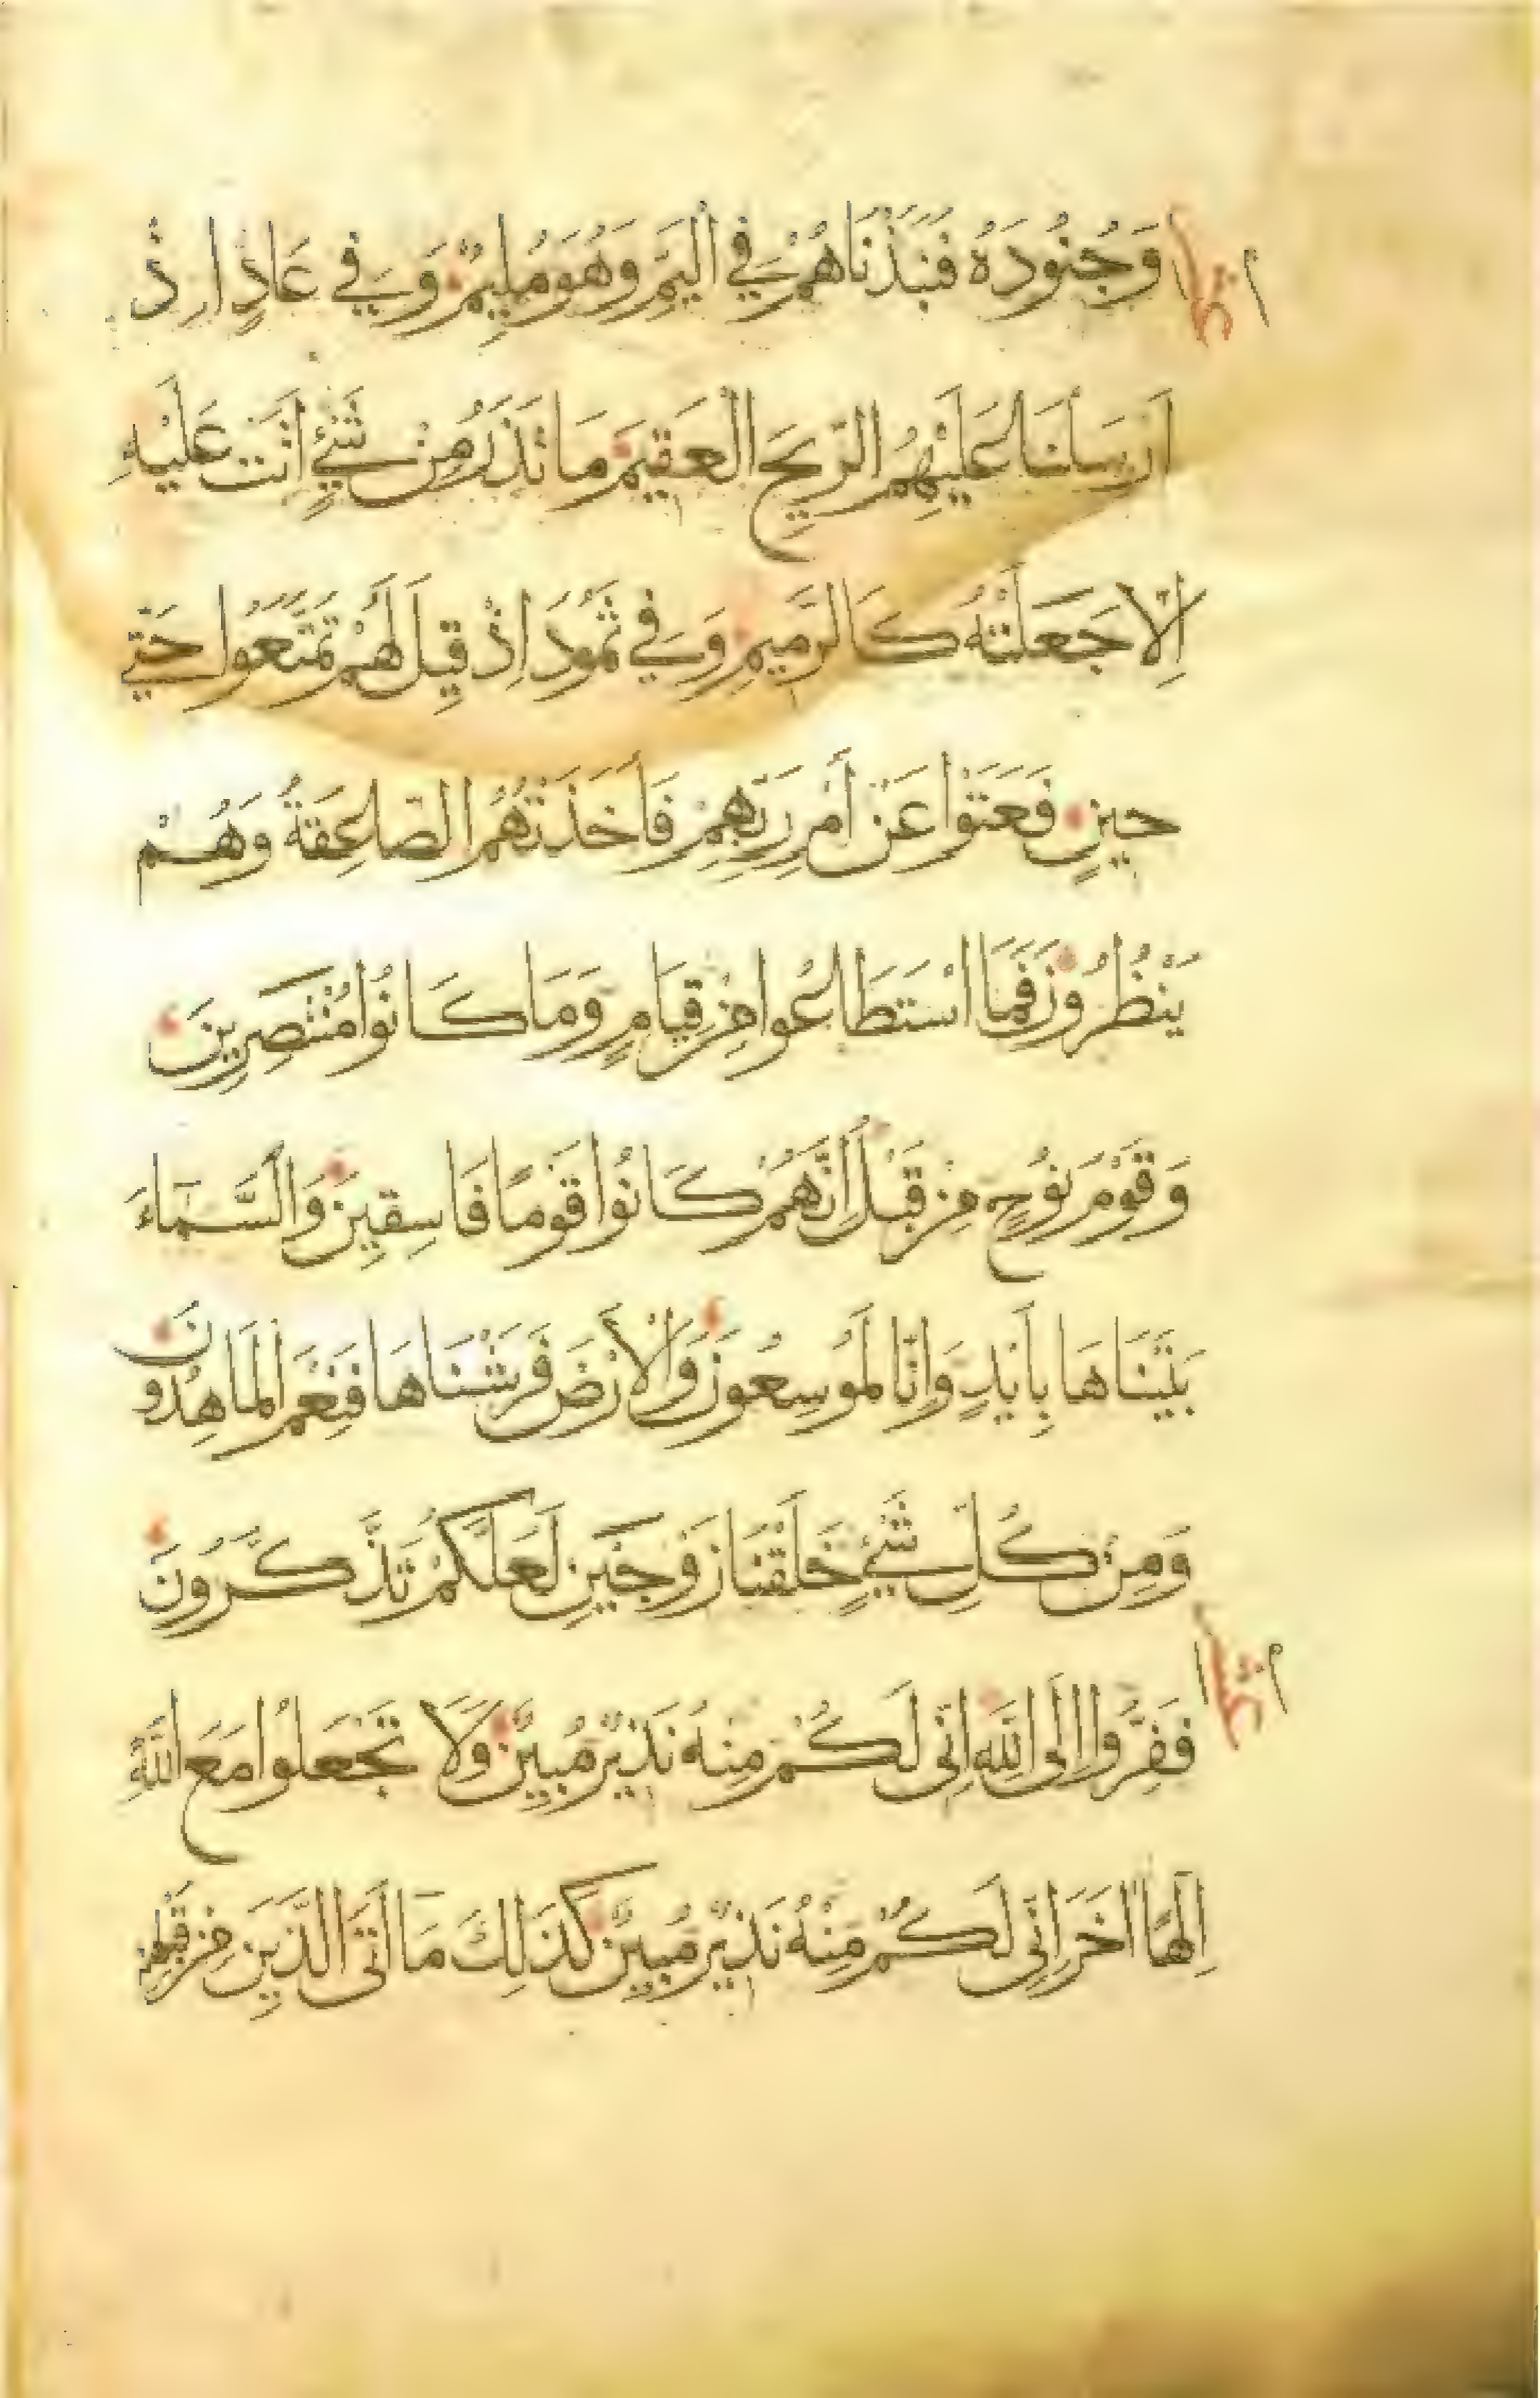 وَجُنُودَهُ فَنَبَذْنَاهُمْ فِي الْيَمِّ وَهُوَ مُلِيمٌ وَفِي عَادٍ اِذْ
اَرْسَلْنَا عَلَيْهِمُ الرِّيحَ الْعَقِيمَ مَا تَذَرُ مِنْ شَيْءٍ اَتَتْ عَلَيْهِ
اِلَّا جَعَلَتْهُ كَالرَّمِيمِ وَفِي ثَمُودَ اِذْ قِيلَ لَهُمْ تَمَتَّعُوا حَتّٰي
حِينٍ فَعَتَوْا عَنْ اَمْرِ رَبِّهِمْ فَاَخَذَتْهُمُ الصّٰعِقَةُ وَهُمْ
يَنْظُرُونَ فَمَا اسْتَطَاعُوا مِنْ قِيَامٍ وَمَا كَانُوا مُنْتَصِرِينَ
وَقَوْمَ نُوحٍ مِنْ قَبْلُ اِنَّهُمْ كَانُوا قَوْمًا فَاسِقِينَ وَالسَّمَاءَ
بَنَيْنَاهَا بِاَيْدٍ وَاِنَّا لَمُوسِعُونَ وَالْاَرْضَ فَرَشْنَاهَا فَنِعْمَ الْمَاهِدُونَ
وَمِنْ كُلِّ شَيْءٍ خَلَقْنَا زَوْجَيْنِ لَعَلَّكُمْ تَذَّكَّرُونَ
فَفِرُّوا اِلَى اللَّهِ اِنِّي لَكُمْ مِنْهُ نَذِيرٌ مُبِينٌ وَلَا تَجْعَلُوا مَعَ اللَّهِ
اِلٰهًا اٰخَرَ اِنِّي لَكُمْ مِنْهُ نَذِيرٌ مُبِينٌ كَذٰلِكَ مَا اَتَى الَّذِينَ مِنْ قَبْلِهِمْ